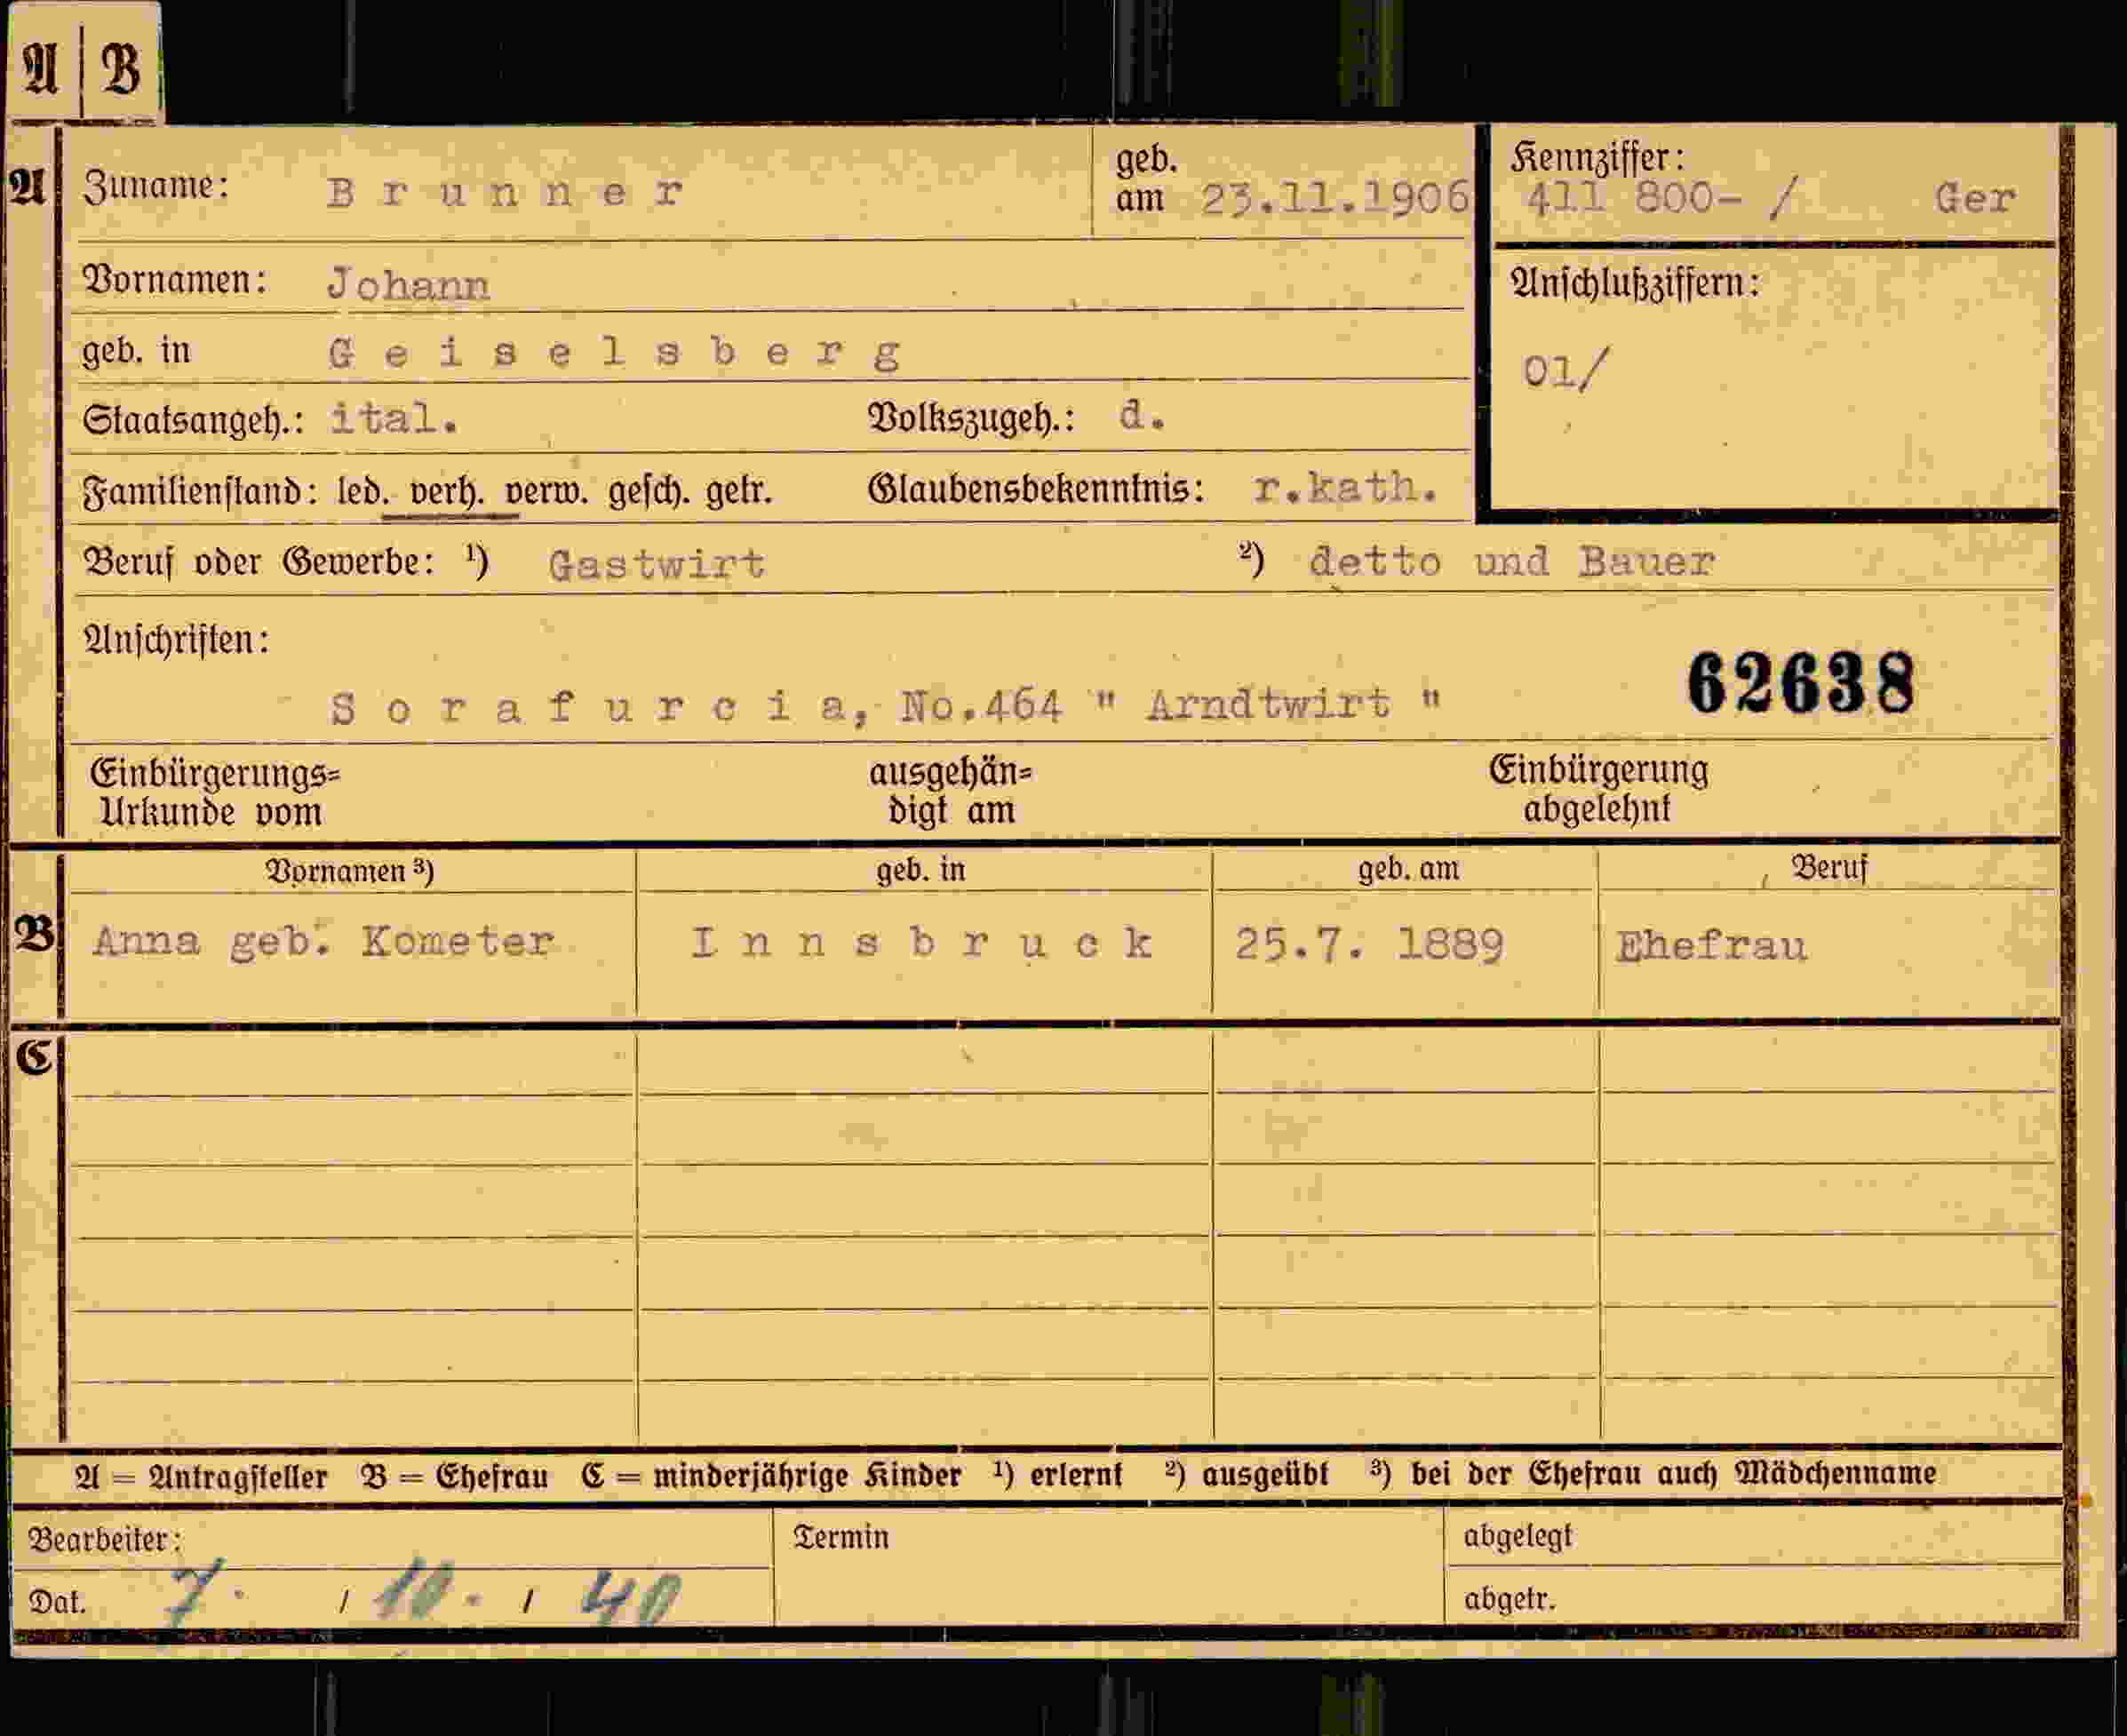 A | B
A Zuname: Brunner geb. am 23.11.1906
Kennziffer:
411 800- / Ger
Vornamen: Johann
Anschlußziffern:
geb. in Geiselsberg
01/
Staatsangeh.: ital. Volkszugeh.: d.
Familienstand: led. verh. verw. gesch. getr. Glaubensbekenntnis: r.kath.
Beruf oder Gewerbe: ¹) Gastwirt ²) detto und Bauer
Anschriften:
62638
Sorafurcia, No.464 " Arndtwirt "
Einbürgerungs= ausgehän= Einbürgerung
Urkunde vom digt am abgelehnt
Vornamen ³) geb. in geb. am Beruf
B Anna geb. Kometer Innsbruck 25.7. 1889 Ehefrau
C
A = Antragsteller B = Ehefrau C = minderjährige Kinder ¹) erlernt ²) ausgeübt ³) bei der Ehefrau auch Mädchenname
Bearbeiter: Termin abgelegt
Dat. 7. / 10. / 40 abgetr.